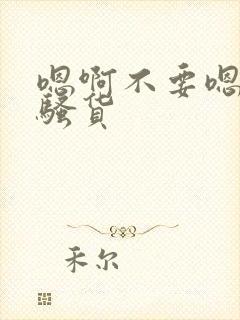 嗯啊不要嗯
骚货
禾尔